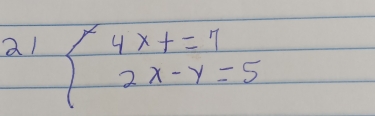 21 { 4x + = 7
2x - y = 5